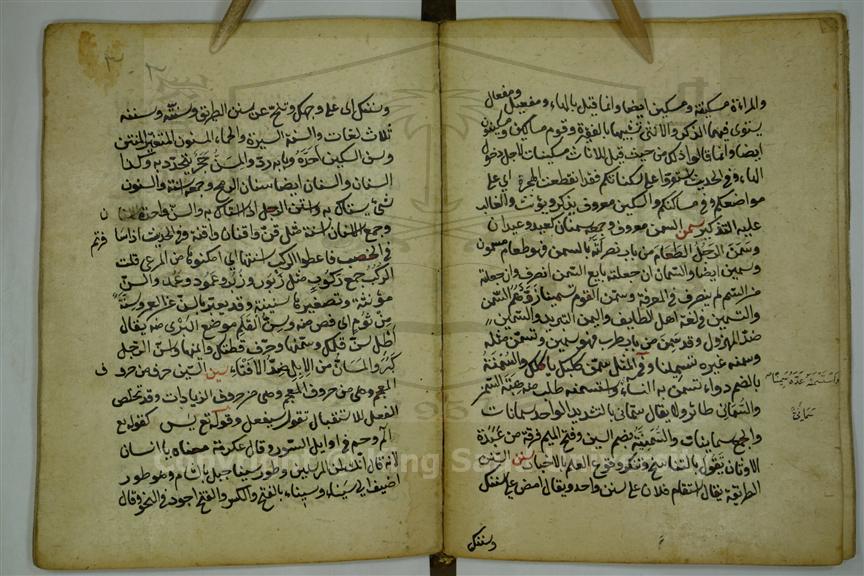 والمراءة مسكينة ومسكين ايضا وانما قيل بالهاء ومفعيل ومفعال
يستوى فيهما الذكر والانثى تشبيها بالفقيرة وقوم مساكين ومسكينون
ايضا وانما قالوا ذلك من حيث قيل للاناث مسكينات لاجل دخول
الهاء وفي الحديث استقروا على سكناتكم فقد انقطعت الهجرة اي على
مواضعكم وفي مساكنكم والسكين معروف يذكر ويؤنث والغالب
عليه التذكير سمن السمن معروف وجمعه سمنان كعبد وعبدان
وسمن الرجل الطعام من باب نصر لته بالسمن فهو طعام مسمون
وسمين ايضا والسمان ان جعلته بايع السمن انصرف وان جعلته
من السم لم ينصرف في المعرفة وسمن القوم تسمينا زودهم السمن
والتسمين في لغة اهل الطايف واليمن التبريد والسمين
ضد المهزول وقد سمن من باب طرب فهو سمين وتسمن مثله
وسمنه غيره تسمينا وفي المثل سمن كلبك ياكلك والسمنة
بالضم دواء تسمن به النساء واستسمنه طلب منه هبة السمن
والسمانى طائر ولا يقال سمانى بالتشديد الواحد سمانات
والجمع سمانيات والسمنية بضم السين وفتح الميم فرقة من عبدة
الاوثان تقول بالتناسخ وتنكر وقوع العلم بالاخبار سنن السنن
الطريقة يقال استقام فلان على سنن واحد ويقال امض على سننك
واستسمنه عده سمينا
سمانى
وسننك
وسننك اي على وجهك وتنح عن سنن الطريق وسننه وسننه
ثلاث لغات والسنة السيرة والحماء المسنون المتغير المنتن
وسن السكين احده وبابه رد والمسن حجر يحدد به وكذا
السنان والسنان ايضا سنان الرمح وجمعه اسنة والسنون
شئ يستاك به واستن الرجل اي استاك به والسن واحدة الاسنان
وجمع الاسنان اسنة مثل قن واقنان واقنة وفي الحديث اذا سافرتم
في الخصب فاعطوا الركب اسنتها اي امكنوها من المرعى قلت
الركب جمع ركوب مثل زبور وزبر وعمود وعمد والسن
مؤنثة وتصغيرها سنينة وقد يعبر بالسن عن العمر وسنة
من ثوم اي فص منه وسن القلم موضع البرى منه يقال
اطل سن قلمك وسمنها وحرف قطتك وايمنها واسن الرجل
كبر والمسان من الابل ضد الافتاء سين السين حرف من حروف
المعجم وهي من حروف المعجم وهي من حروف الزيادات وقد تخلص
الفعل للاستقبال تقول سيفعل وقوله تع يس كقوله تع
الم وحم في اوايل السور وقال عكرمة معناه يا انسان
لانه قال انك لمن المرسلين وطور سينا جبل بالشام وهو طور
اضيف الى سيناء وسيناء بالفتح والكسر والفتح اجود في النحو وقال